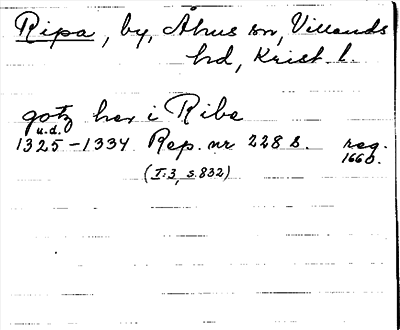 Ripa, by, Åhus sn, Villands
hd, Krist. l.
gotz her i Ribe
u.d.
1325-1334 Rep. nr 228 B. reg.
1660.
(I:3, s.832)